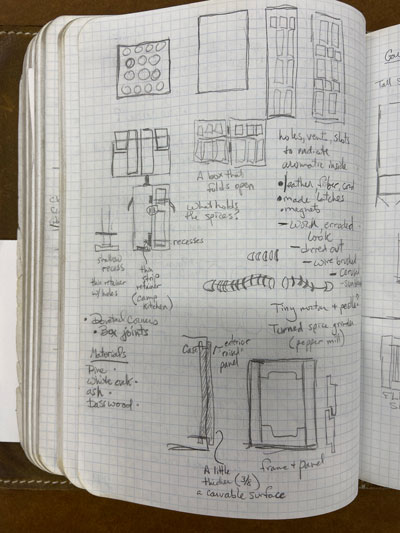 holes, vents, slots
to radiate
aromatic inside
A box that
folds open
• leather, fiber, cord
• made latches
• magnets
what holds
the spices?
– worn, eroded
look
– dried out
– wire brushed
– carved
recesses
shallow
recess
thin retainer
w/ holes
thin
strip
retainer
(camp
kitchen)
Tiny mortar + pestle?
Turned spice grinder
(pepper mill)
• corners
• Box joints
Materials
Pine •
white oak •
ash •
basswood •
exterior
panel
A little
thicker (3/8)
= carvable surface
frame + panel
Tall